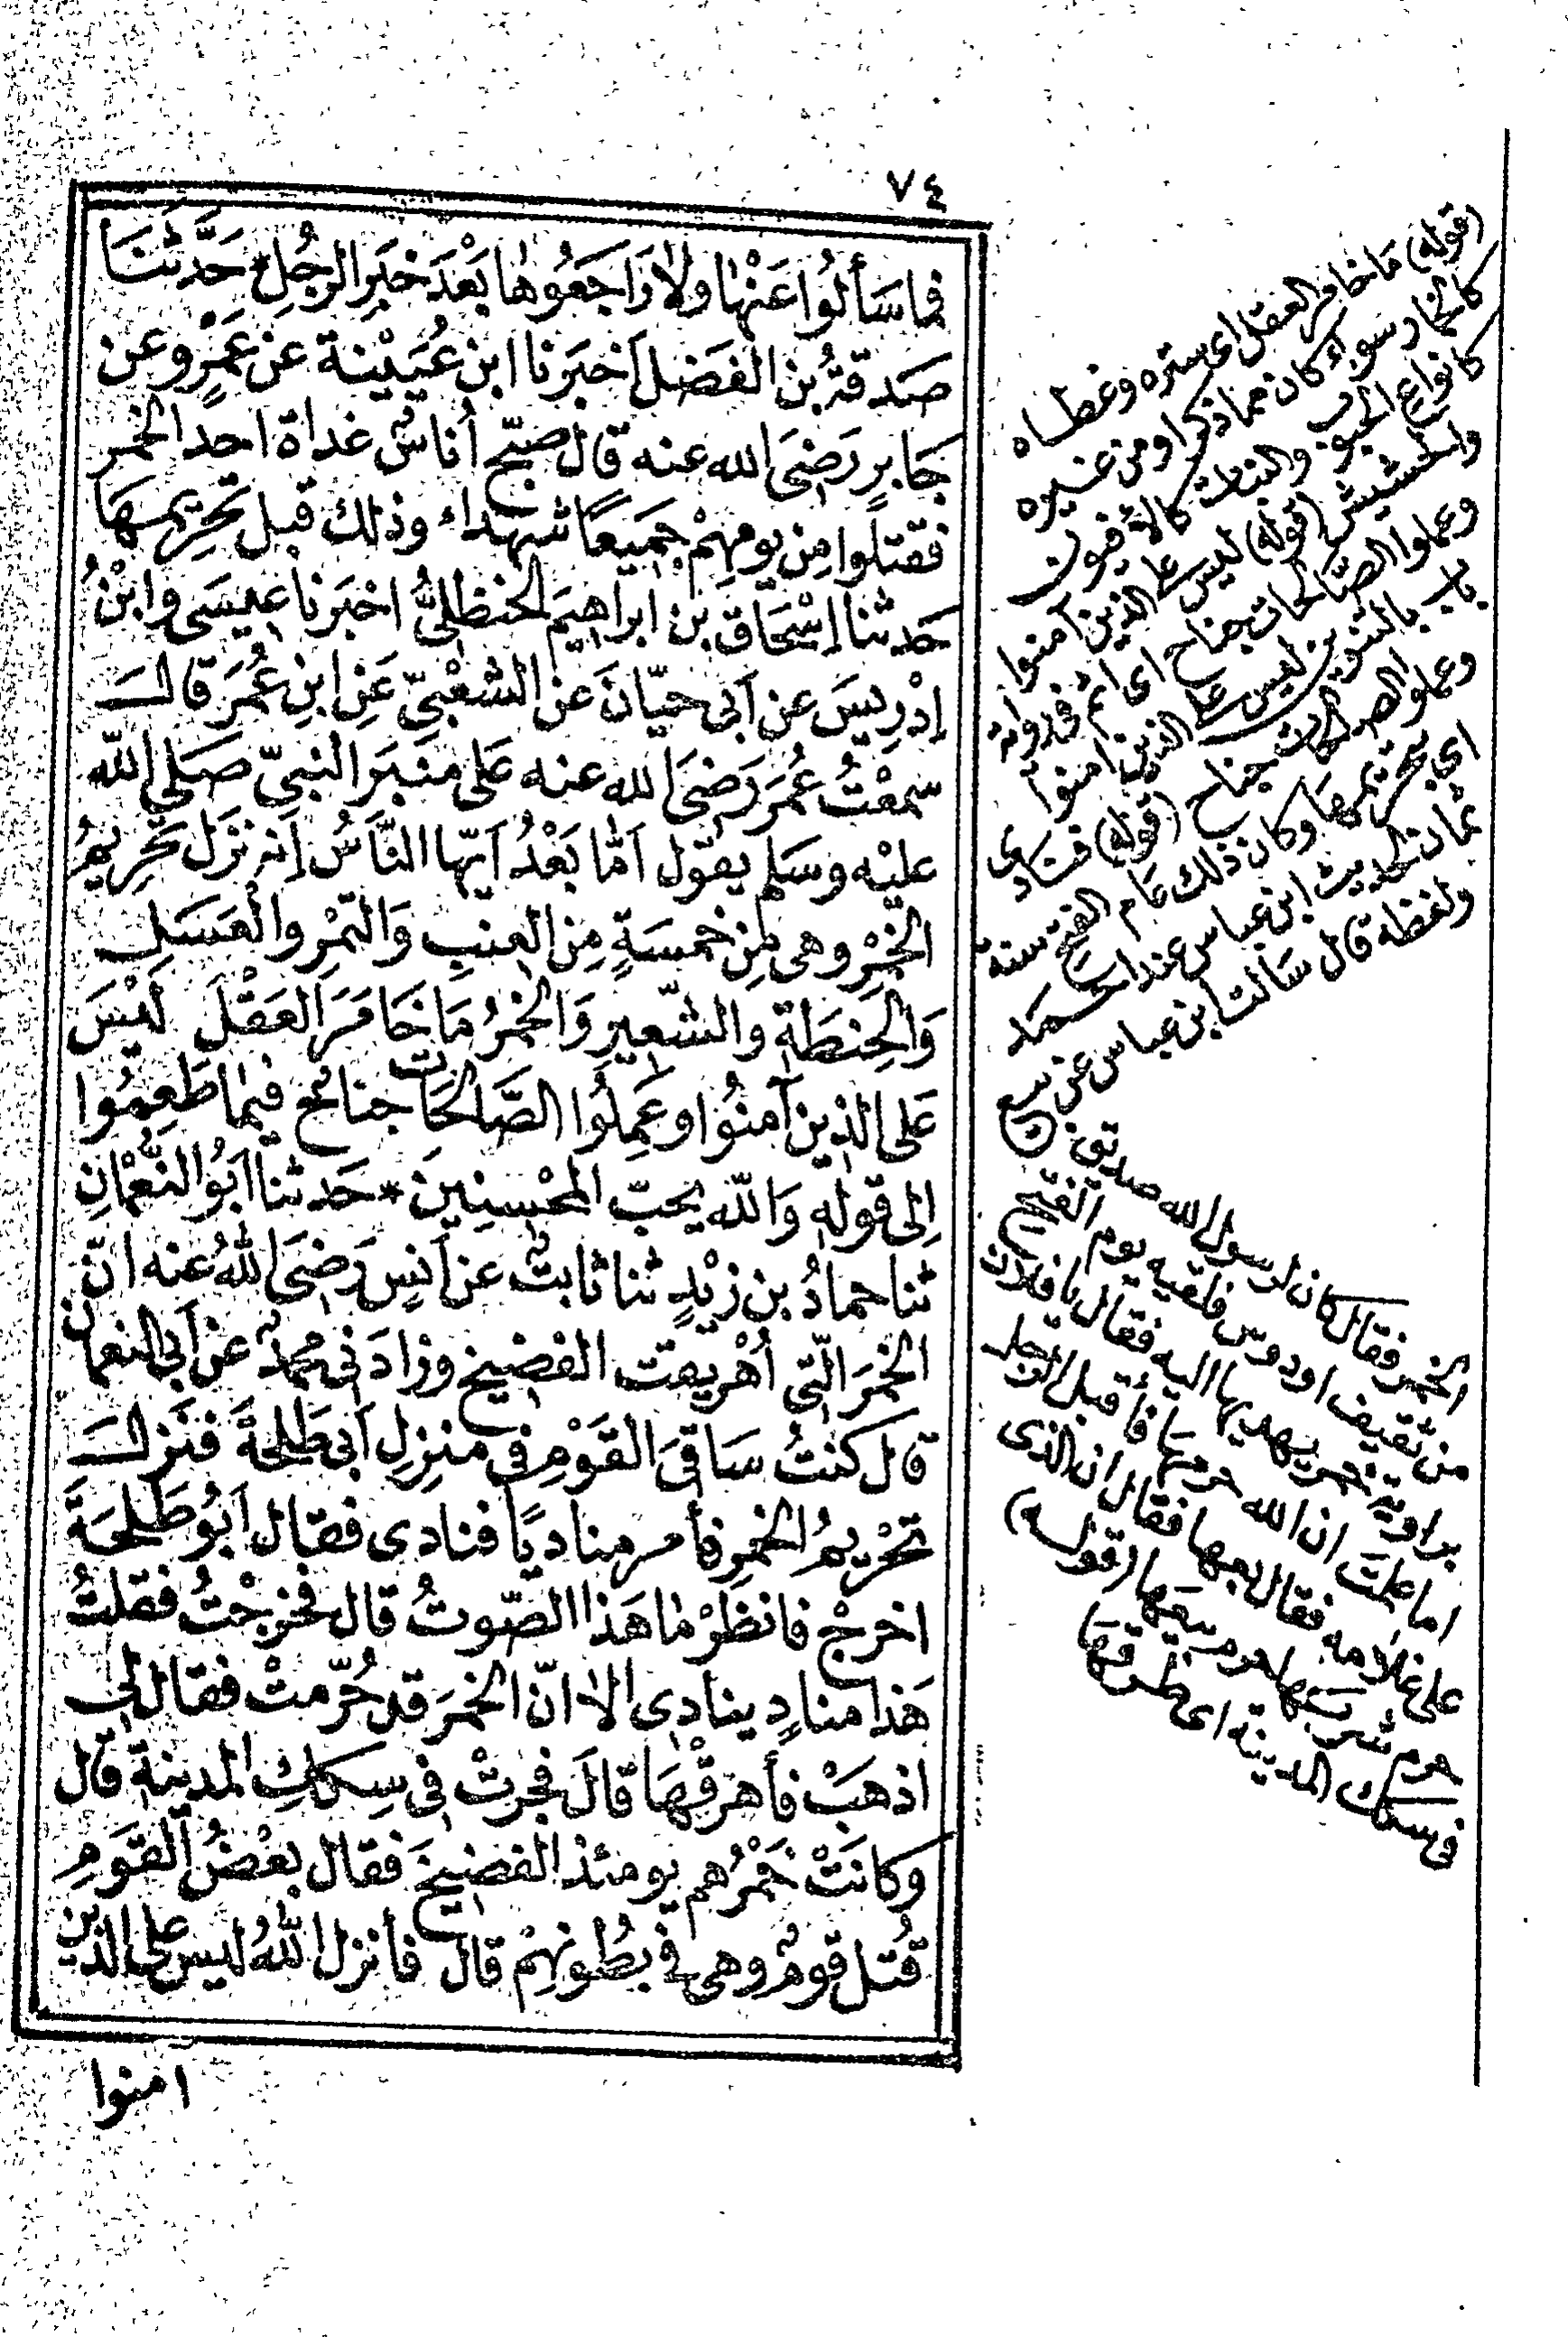 ٧٤
فما سألوا عنها ولا راجعوها بعد خبر الرجل * حَدَّثنَا
صَدقةُ بن الفَضل أخبَرَنا ابن عُيَيْنة عن عَمْرٍو عن
جَابرٍ رَضىَ الله عنه قال صبّح أُناسٌ غداة احد الخمر
فقتلوا مِن يومهِمْ جميعًا شهداء وذلك قبل تحريمها
حَدثنا إسْحَاق بن ابراهيمَ الحنظلىُّ اخبَرنا عيسَى وابْنُ
إدْرِيسَ عن أبى حيّانَ عن الشعْبيّ عَنِ ابنِ عُمَرَ قال
سمعْتُ عُمَرَ رَضىَ الله عنه على منبَر النبىّ صَلى الله
عليْه وسَلم يقول أمّا بَعْدُ أيّها النَّاسُ إنه نزَل تَحْرِيمُ
الخمْرِ وهى مِن خمسَةٍ مِنَ العِنبِ وَالتمْرِ وَالْعَسَلِ
وَالحِنطَةِ والشّعِيرِ وَالخمرُ مَا خَامَرَ العَقْلَ لَيْسَ
عَلى الذِينَ آمنُوا وعَمِلُوا الصَّالحَات جنَاحٌ فيمَا طَعِمُوا
إلى قوله وَالله يحبّ المحْسِنِينَ * حَدثنا أبُو النُّعْمَانِ
ثنا حمادُ بن زَيْدٍ ثنا ثابتٌ عن أنسٍ رَضىَ اللهُ عنه انّ
الخمَر الّتى أُهْريقت الفضيخ وزادَنى محمّدٌ عن أبى النعمان
قال كنتُ سَاقىَ القَوْمِ فى منزِلِ أبى طَلحةَ فنَزل
تحْرِيمُ الخمرِ فأمر مناديًا فنادى فقال أبُو طَلحَةَ
اخرجْ فانظرْ مَا هَذا الصّوتُ قال فخرجْتُ فقلتُ
هَذا منادٍ ينادِى ألا انّ الخمَر قد حُرّمتْ فقال لى
اذهَبْ فأهرقْهَا قالَ فجرتْ فى سِكَكِ المدينةِ قال
وكانَتْ خمْرُهم يومئذ الفضيخَ فقال بعْضُ القوَمِ
قُتل قومٌ وهى فى بطُونهِمْ قال فأنزل اللهُ ليس على الذين
امنوا
(قوله) مَا خامر العقل اى ستره وغطاه
كالخمار سواء كان مما ذكر او من غيره
كانواع الحبوب والنبات كالافيون
والحشيش (قوله) ليس على الذين آمنوا
وعملوا الصّالحات جناح اى اثم فى رواية
باب بالتنوين ليس على الذين امنوا
وعملوا الصالحات جناح (قوله) فنادى
اى بتحريمها وكان ذلك عام الفتح سنة
ثمان لحديث ابن عباس عند احمد
ولفظه قال سَالت ابن عباس عن بيع
الخمر فقال كان لرسول الله صديق
من ثقيف او دوس فلقيه يوم الفتح
براوية خمر يهديها اليه فقال يا فلان
اما علمت ان الله حرمها فأقبل الرجل
على غلامه فقال بعها فقال ان الذى
حرم شربها حرم بيعها (قوله)
فى سكك المدينة اى طرقها